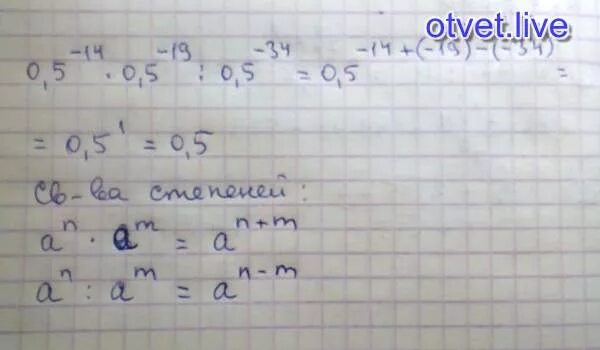 otvet.live
0,5^-14 · 0,5^-19 : 0,5^-34 = 0,5^-14+(-19)-(-34) =
= 0,5^1 = 0,5
Св-ва степеней:
a^n · a^m = a^n+m
a^n : a^m = a^n-m